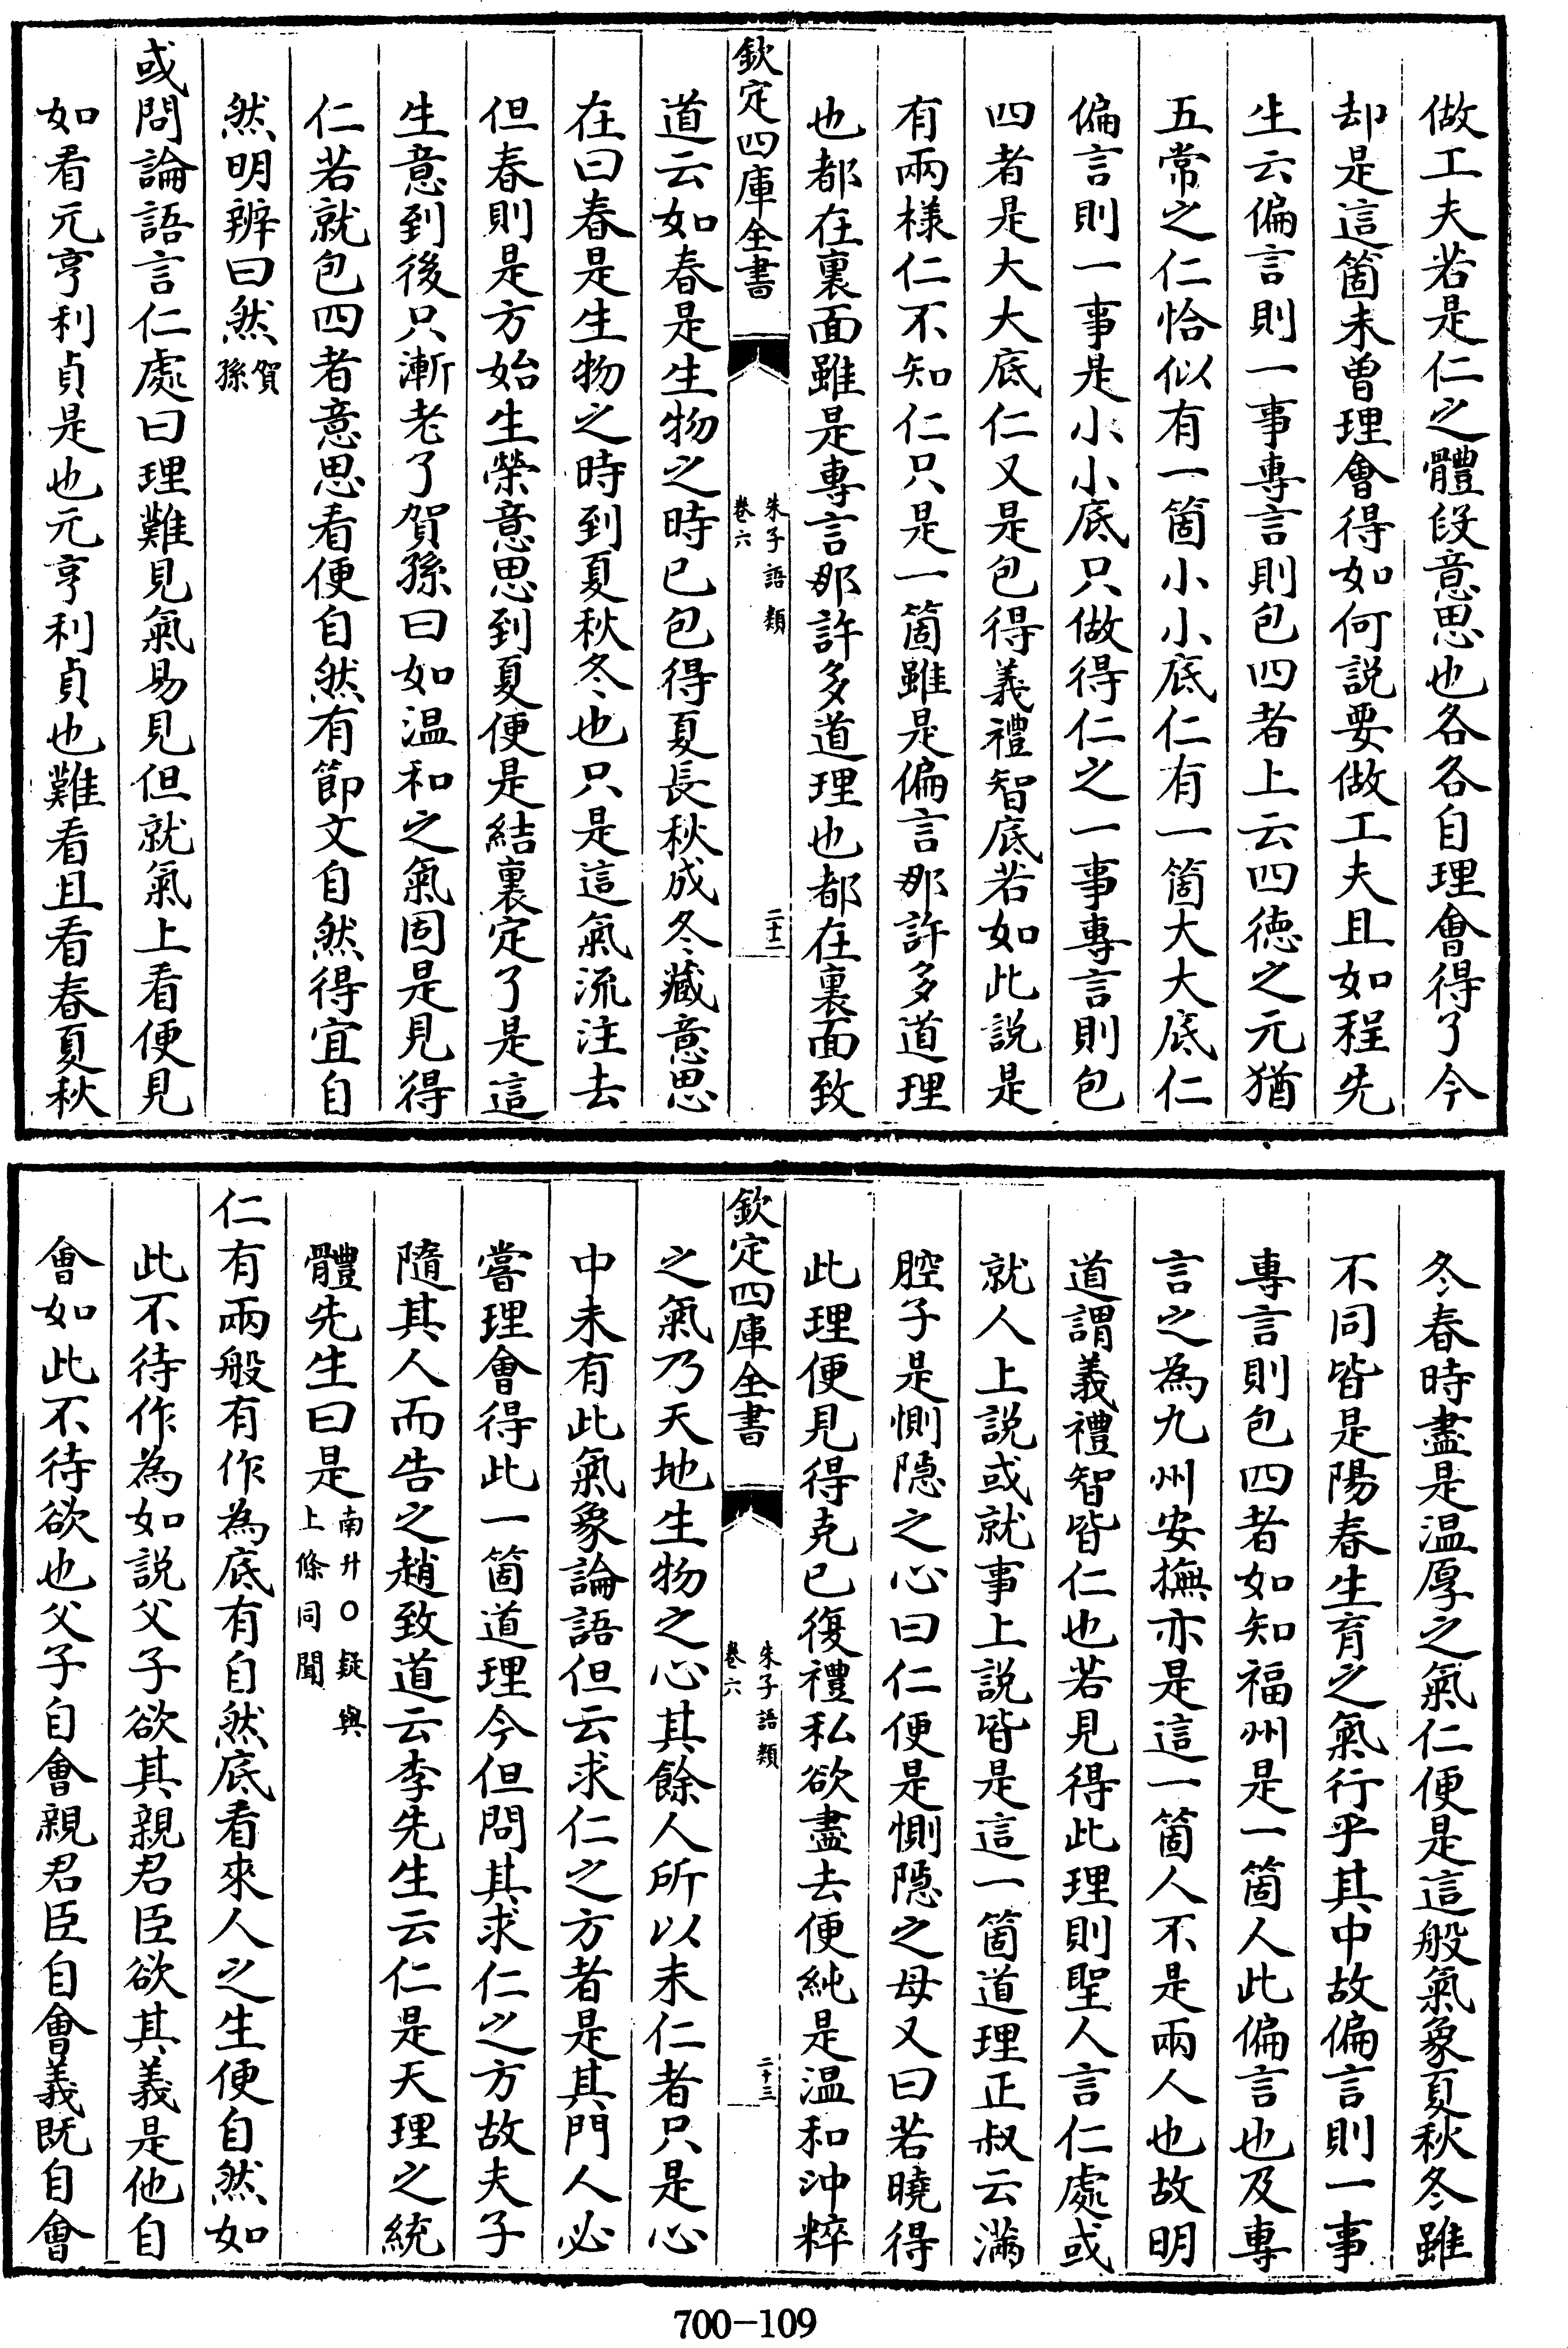 做工夫若是仁之體段意思也各各自理會得了今
却是這箇未曽理會得如何說要做工夫且如程先
生云偏言則一事專言則包四者上云四徳之元猶
五常之仁恰似有一箇小小底仁有一箇大大底仁
偏言則一事是小小底只做得仁之一事專言則包
四者是大大底仁又是包得義禮智底若如此說是
有兩様仁不知仁只是一箇雖是偏言那許多道理
也都在裏面雖是專言那許多道理也都在裏面致
欽定四庫全書
朱子語類
卷六
二十二
道云如春是生物之時已包得夏長秋成冬藏意思
在曰春是生物之時到夏秋冬也只是這氣流注去
但春則是方始生榮意思到夏便是結裏定了是這
生意到後只漸老了賀孫曰如温和之氣固是見得
仁若就包四者意思看便自然有節文自然得宜自
然明辨曰然賀孫
或問論語言仁處曰理難見氣易見但就氣上看便見
如看元亨利貞是也元亨利貞也難看且看春夏秋
冬春時盡是温厚之氣仁便是這般氣象夏秋冬雖
不同皆是陽春生育之氣行乎其中故偏言則一事
專言則包四者如知福州是一箇人此偏言也及專
言之為九州安撫亦是這一箇人不是兩人也故明
道謂義禮智皆仁也若見得此理則聖人言仁處或
就人上說或就事上說皆是這一箇道理正叔云滿
腔子是惻隠之心曰仁便是惻隠之母又曰若曉得
此理便見得克已復禮私欲盡去便純是温和沖粹
欽定四庫全書
朱子語類
卷六
二十三
之氣乃天地生物之心其餘人所以未仁者只是心
中未有此氣象論語但云求仁之方者是其門人必
嘗理會得此一箇道理今但問其求仁之方故夫子
隨其人而告之趙致道云李先生云仁是天理之統
體先生曰是南升○疑與上條同聞
仁有兩般有作為底有自然底看來人之生便自然如
此不待作為如說父子欲其親君臣欲其義是他自
會如此不待欲也父子自會親君臣自會義既自會
700-109